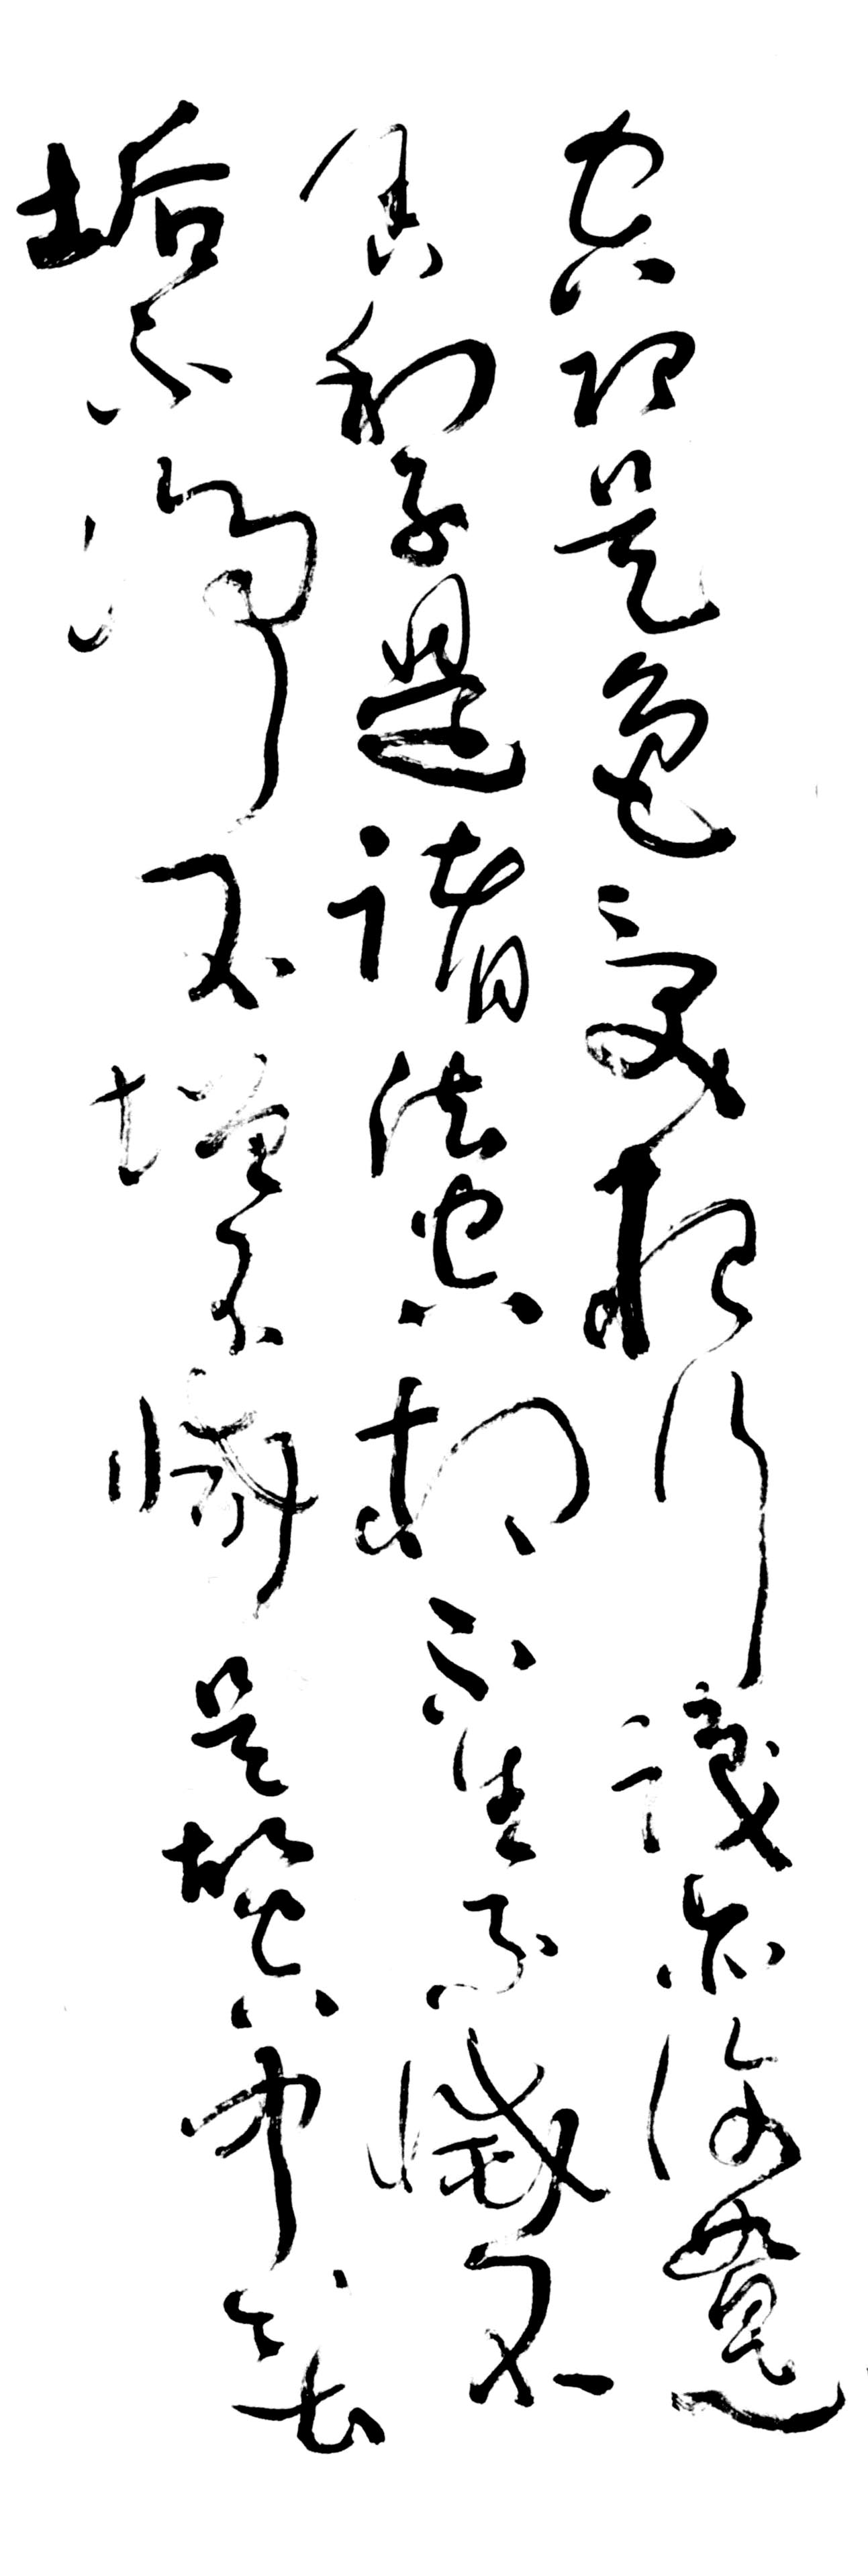 空即是色受想行識亦復如是
舍利子是諸法空相不生不滅不
垢不淨不增不減是故空中無